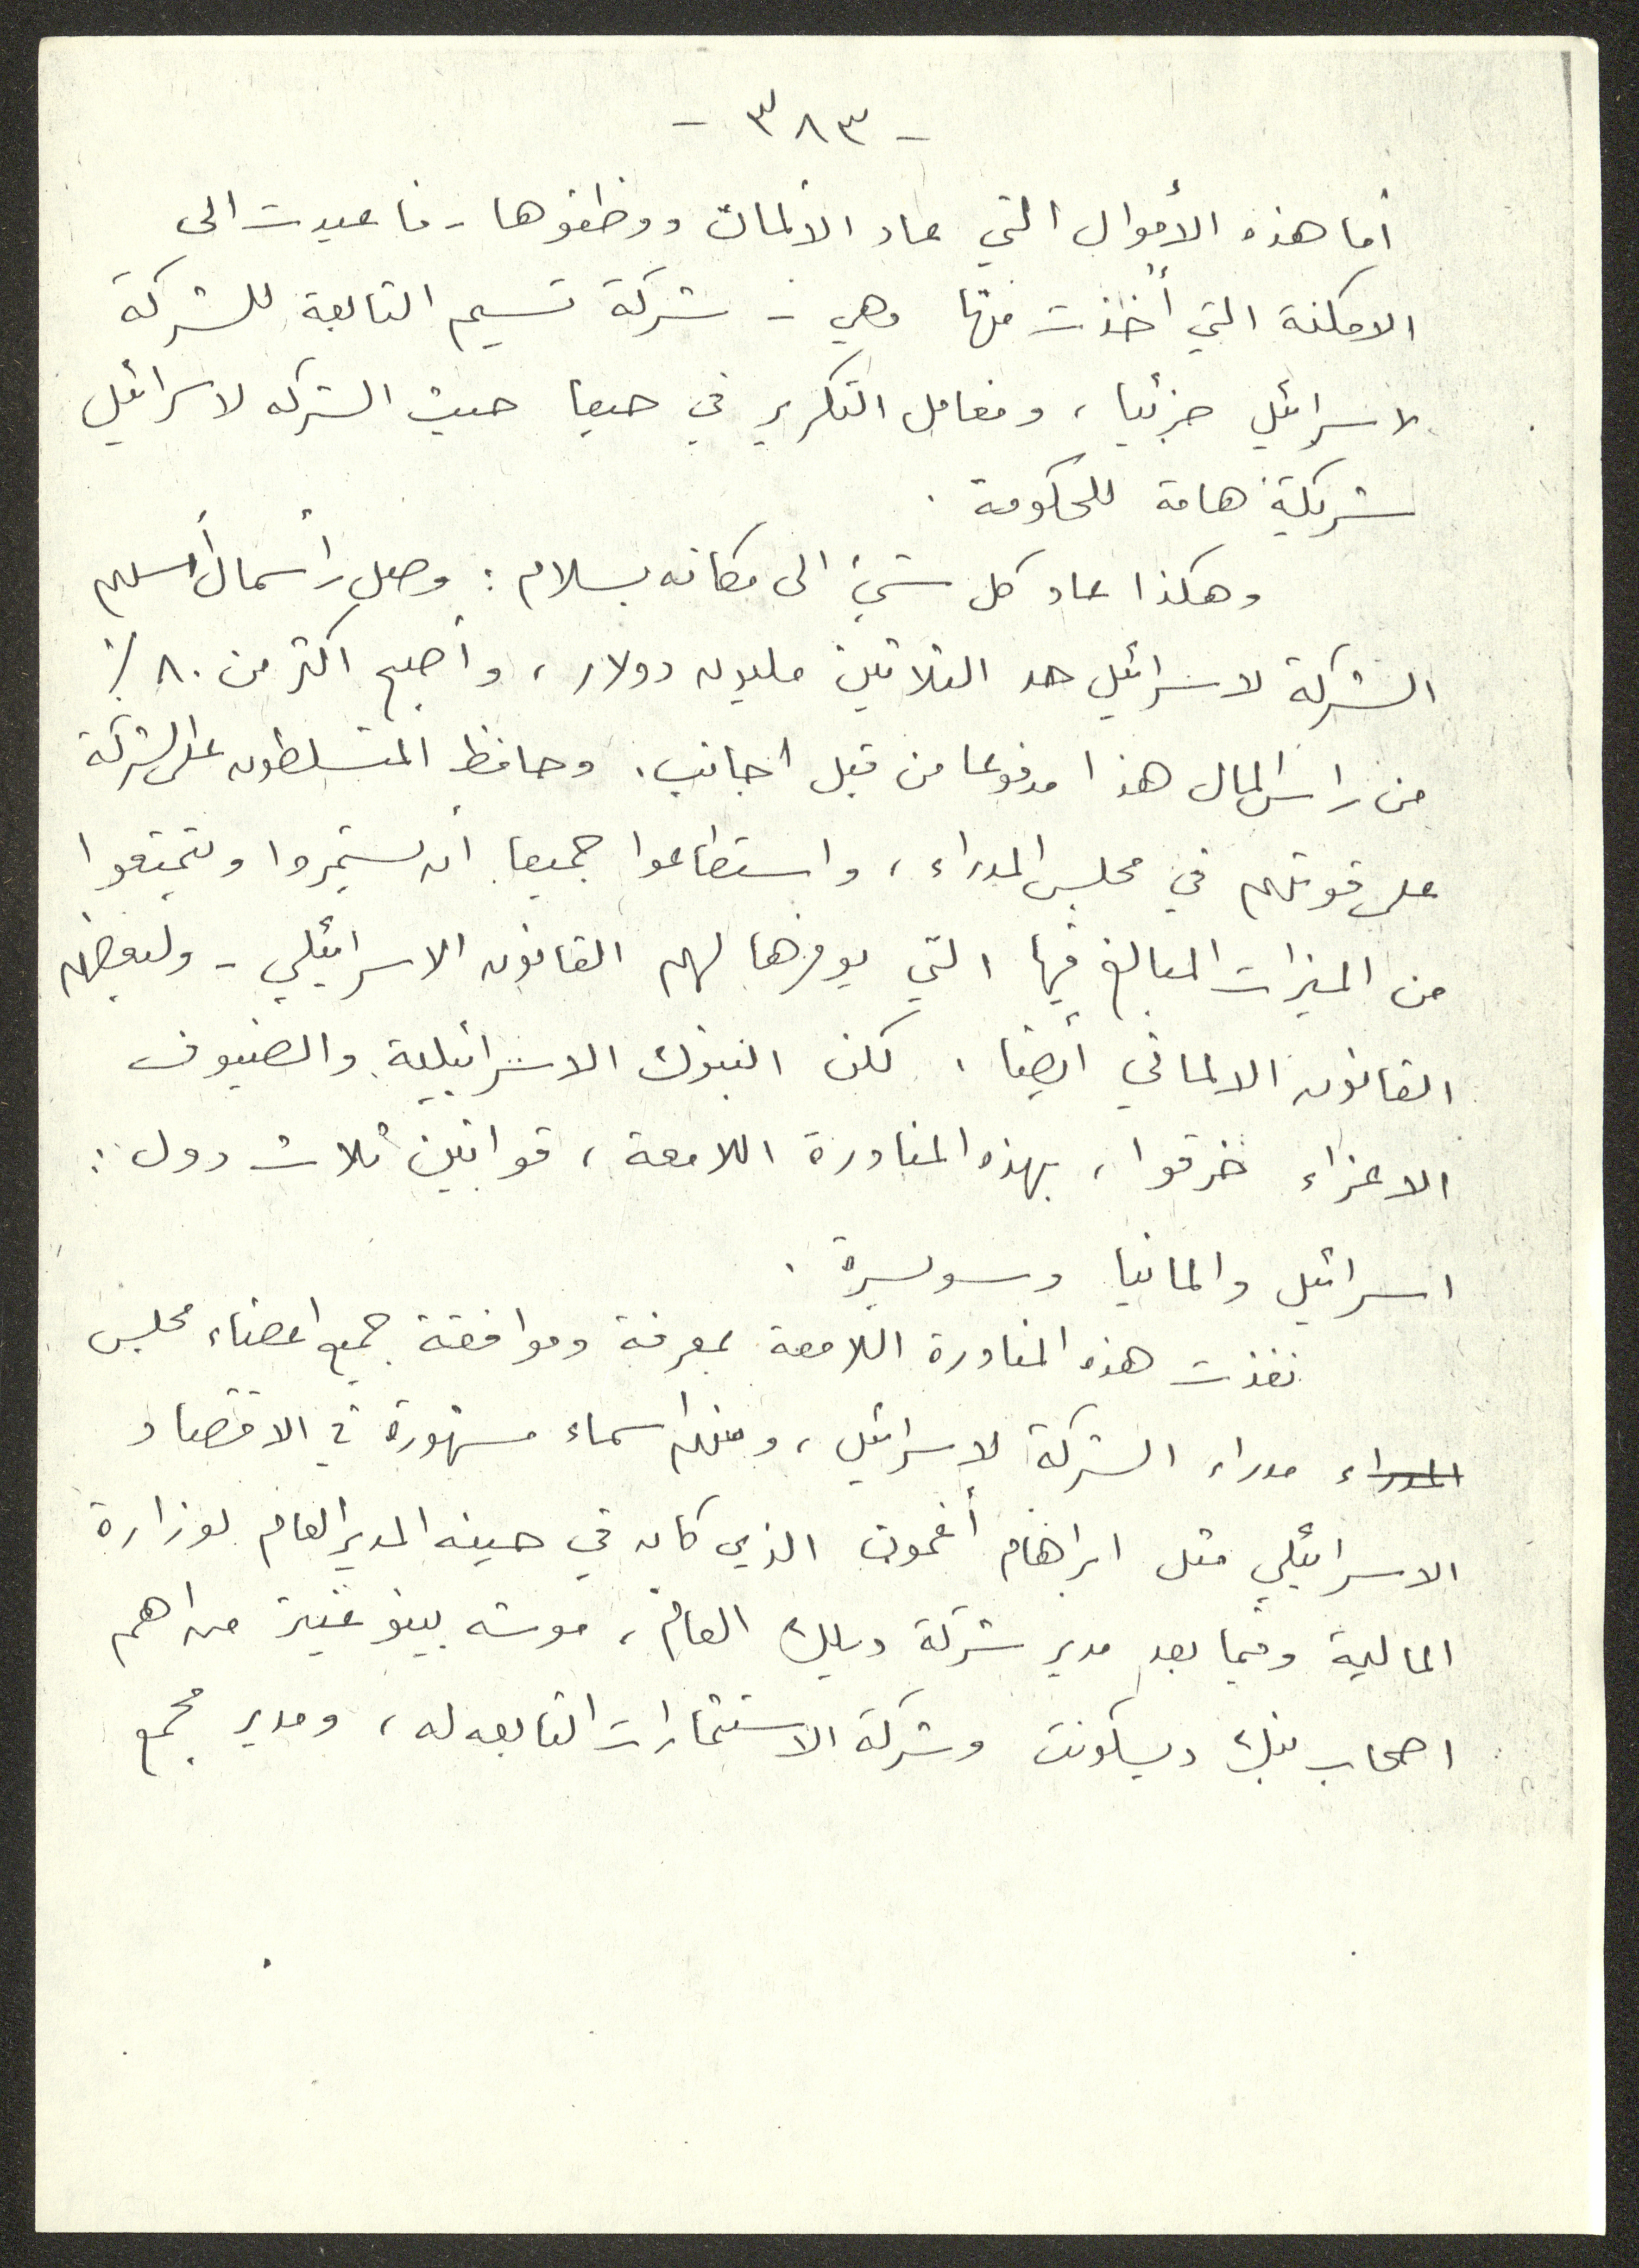 - ٣٨٣ -
أما هذه الأموال التي عاد الالمان ووظفوها - فاعيدت الى
الامكنة التي أخذت منها وهي - شركة تسيم التابعة للشركة
لاسرائيل جزئيا ، ومعامل التكرير في حيفا حيث الشركه لاسرائيل
شريكة هامة للحكومة .
وهكذا عاد كل شيئ الى مكانه بسلام : وصل رأسمال أسهم
الشركة لاسرائيل حد الثلاثين مليون دولار ، وأصبح اكثر من ٨٠ ٪
من راس المال هذا مدفوعا من قبل اجانب . وحافظ المتسلطون على الشركة
على قوتهم في مجلس المدراء ، واستطاعوا جميعا أن يستمروا ويتمتعوا
من الميزات المبالغ فيها التي يوفرها لهم القانون الاسرائيلي - ولبعضهم
القانون الالماني أيضا . لكن البنوك الاسرائيلية والضيوف
الاعزاء خرقوا ، بهذه المناورة اللامعة ، قوانين ثلاث دول :
اسرائيل والمانيا وسويسرة .
نفذت هذه المناورة اللامعة بمعرفة وموافقة جميع اعضاء مجلس
المدراء مدراء الشركة لاسرائيل ، ومنهم اسماء مشهورة في الاقتصاد
الاسرائيلي مثل ابراهام أغمون الذي كان في حينه المدير العام لوزارة
المالية وفيما بعد مدير شركة ديلك العام ، موشه بينوغنيز من اهم
اصحاب بنك ديسكونت وشركة الاستثمارات التابعه له ، ومدير مجمع